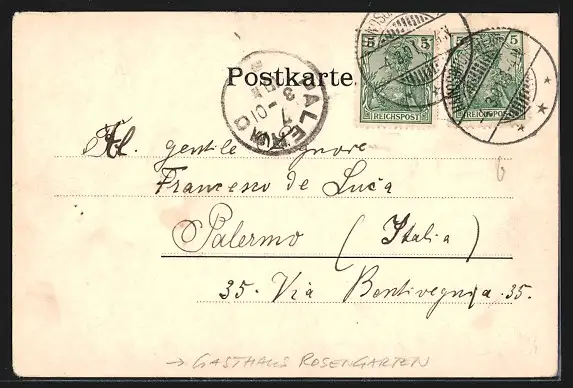 Postkarte
5 5
REICHSPOST REICHSPOST
PALERMO
7 3-01
Al gentile Signore
Francesco de Luca
Palermo (Italia)
35. Via Bentivegna. 35.
6
→ GASTHAUS ROSENGARTEN